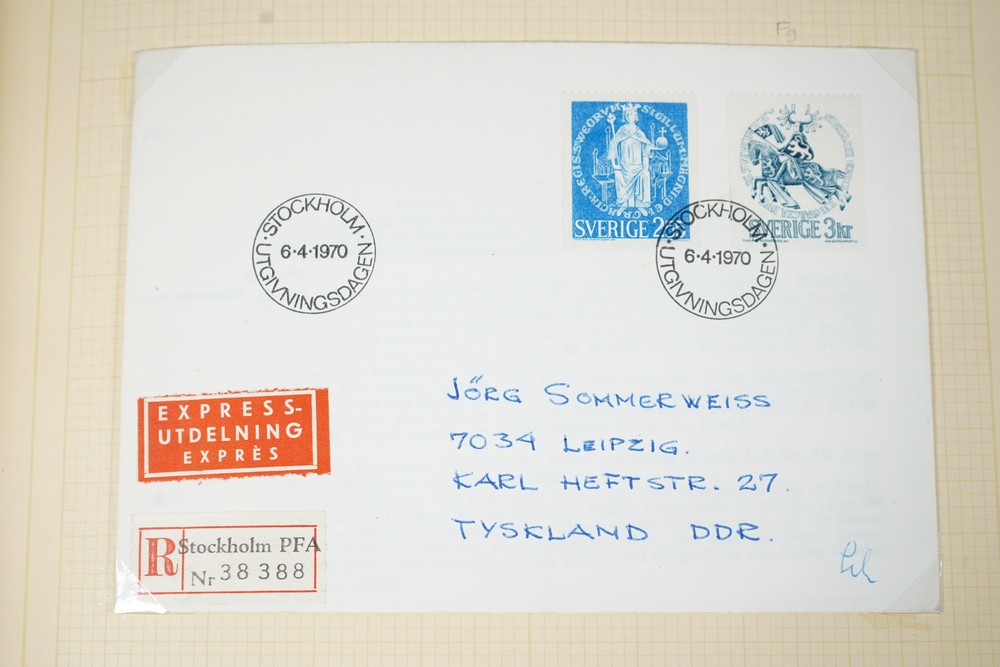 Fg
SIGILLUM MAGNI DEI GRACIA REGIS SWEORVM
SVERIGE 2
SVERIGE 3kr
·STOCKHOLM·
6·4·1970
UTGIVNINGSDAGEN
·STOCKHOLM·
6·4·1970
UTGIVNINGSDAGEN
EXPRESS-
UTDELNING
EXPRÈS
JÖRG SOMMERWEISS
7034 LEIPZIG.
KARL HEFTSTR. 27.
TYSKLAND DDR.
R Stockholm PFA
Nr 38 388